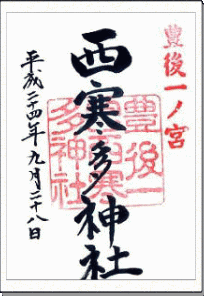 豊後一ノ宮
西寒多神社
豊後一
宮西寒
多神社
平成二十四年九月二十八日